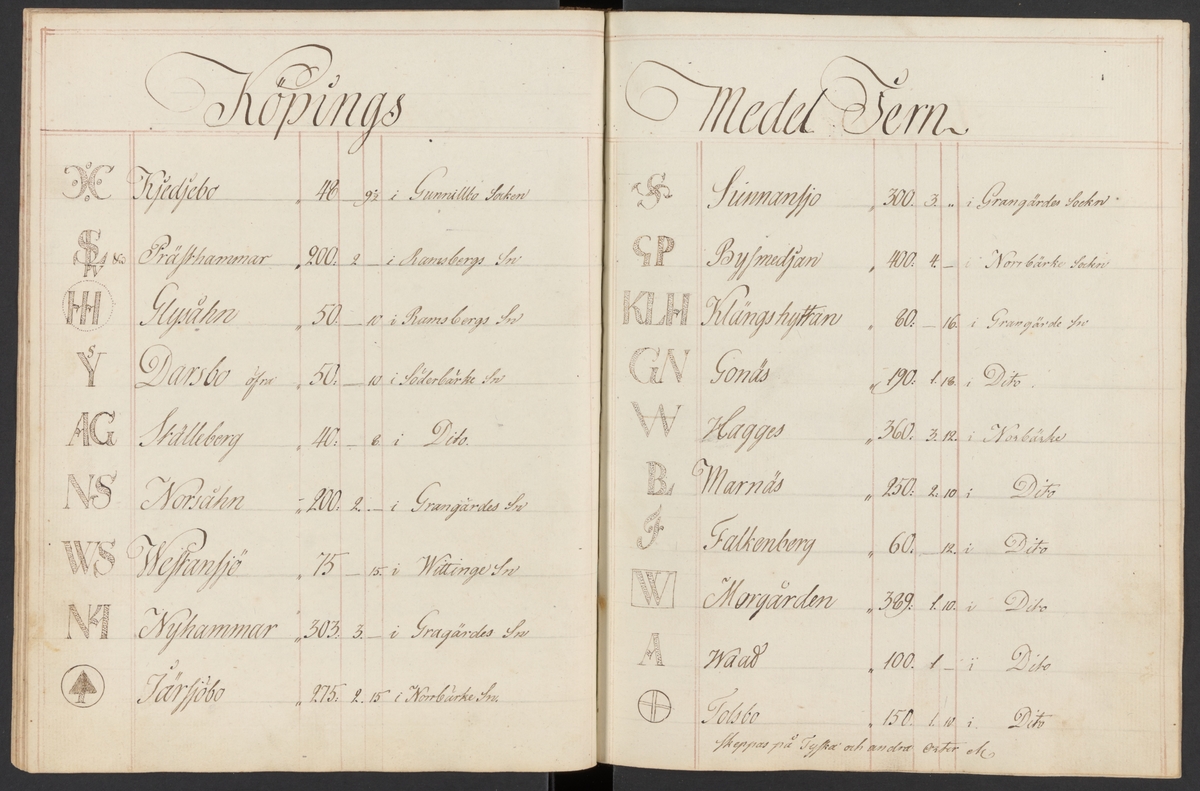 Köpings
Kjedjebo „ 48 _ 9½ i Gunnillbo Socken
Prästhammar „ 200. 2 _ i Ramsbergs Sn
HH Glysåhn „ 50. _ 10 i Ramsbergs Sn
Y S Darsbo öfre „ 50. _ 10 i Söderbärke Sn
AG Stålleberg „ 40. _ 8. i Dito.
NS Norsåhn „ 200. 2. _ i Grangärdes Sn
WS Westansjö „ 75 _ 15. i Wittinge Sn
NH Nyhammar „ 303. 3. _ i Gragärdes Sn
Järsjöbo „ 275. 2. 15 i Norrbärke Sn.
Medel Jern
Sunnansjo „ 300. 3. „ i Grangärdes Sockn
GP Bysmedjan „ 400. 4. _ i Norrbärke Sockn
KLH Klängshyttan „ 80. _ 16. i Grangärde Sn
GN Gonäs „ 190. 1. 18. i Dito.
W Hagges „ 360. 3. 12. i Norbärke
B Marnäs „ 250. 2. 10 i Dito
F Falkenberg „ 60. _ 12. i Dito
W Morgården „ 389. 1. 10. i Dito
A Waad „ 100. 1 _ i Dito
Tolsbo „ 150. 1. 10. i Dito
skeppas på Tyska och andra orter